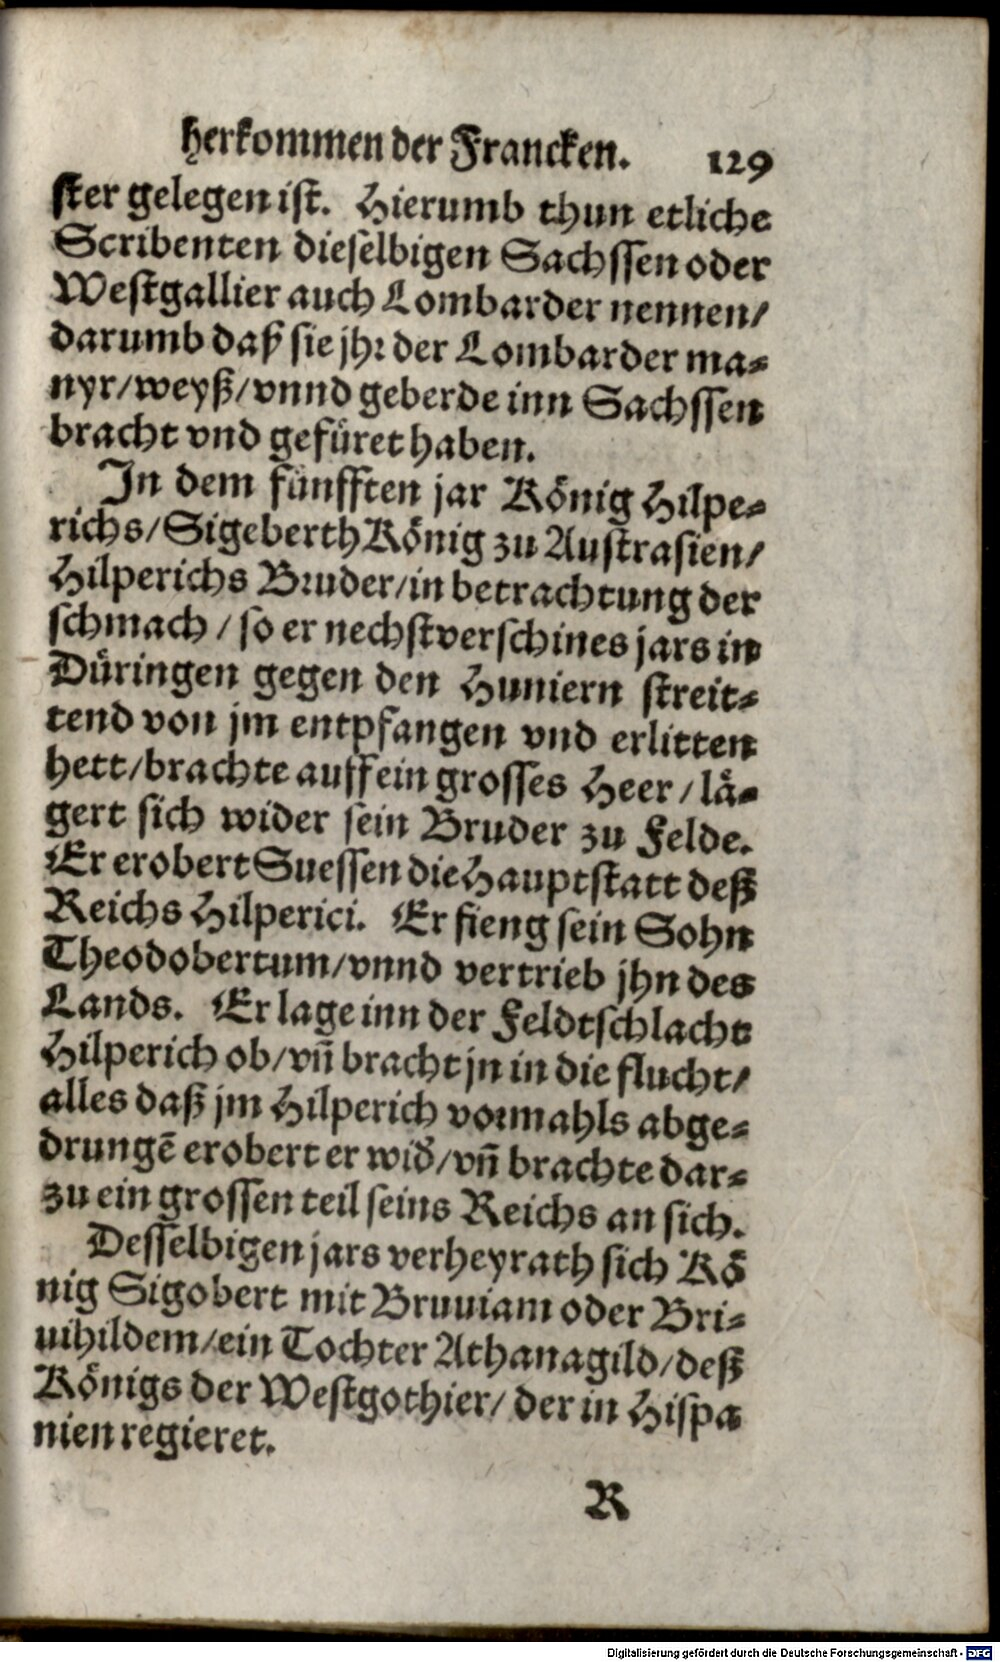 herkommen der Francken. 129
ster gelegen ist. Hierumb thun etliche
Scribenten dieselbigen Sachssen oder
Westgallier auch Lombarder nennen/
darumb daß sie jhr der Lombarder ma-
nyr/weyß/vnnd geberde inn Sachssen
bracht vnd gefüret haben.
In dem fünfften jar König Hilpe-
richs/Sigeberth König zu Austrasien/
Hilperichs Bruder/in betrachtung der
schmach/so er nechstverschines jars in
Düringen gegen den Huniern streit-
tend von jm entpfangen vnd erlitten
hett/brachte auff ein grosses Heer/lä-
gert sich wider sein Bruder zu Felde.
Er erobert Suessen die Hauptstatt deß
Reichs Hilperici. Er fieng sein Sohn
Theodobertum/vnnd vertrieb jhn des
Lands. Er lage inn der Feldtschlacht
Hilperich ob/vñ bracht jn in die flucht/
alles daß jm Hilperich vormahls abge-
drungẽ erobert er wid̃/vñ brachte dar-
zu ein grossen teil seins Reichs an sich.
Desselbigen jars verheyrath sich Kö
nig Sigobert mit Bruuiam oder Bri-
uihildem/ein Tochter Athanagild/deß
Königs der Westgothier/der in Hispa
nien regieret.
R
Digitalisierung gefördert durch die Deutsche Forschungsgemeinschaft - DFG